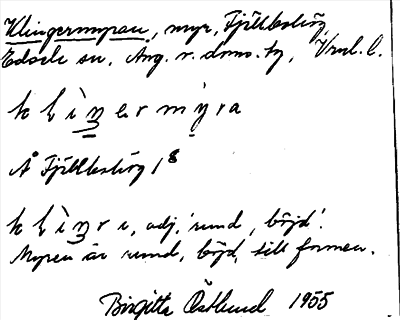 Klingermyran, myr, Fjällboberg,
Edsele sn, Ång. v. doms. tg, Vnrl. l.
k l ì ŋ e r m y r a
Å Fjällboberg 1⁸
k l ì ŋ r ı, adj. 'rund, böjd'.
Myren är rund, böjd, till formen.
Birgitta Östlund 1955